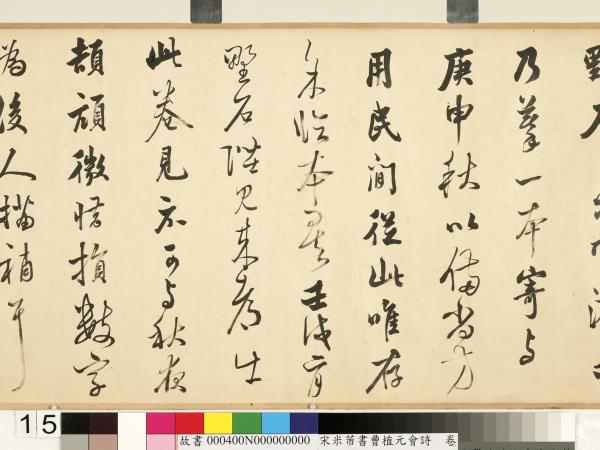 野石
乃摹一本寄与
庚申秋以備尚方
用民间從此唯存
朱临本矣壬戌有
野石携見来為生
此卷見示可与秋夜
頡頏微惜損數字
為後人描補耳
15
故書 000400N000000000 宋米芾書曹植元會詩 卷